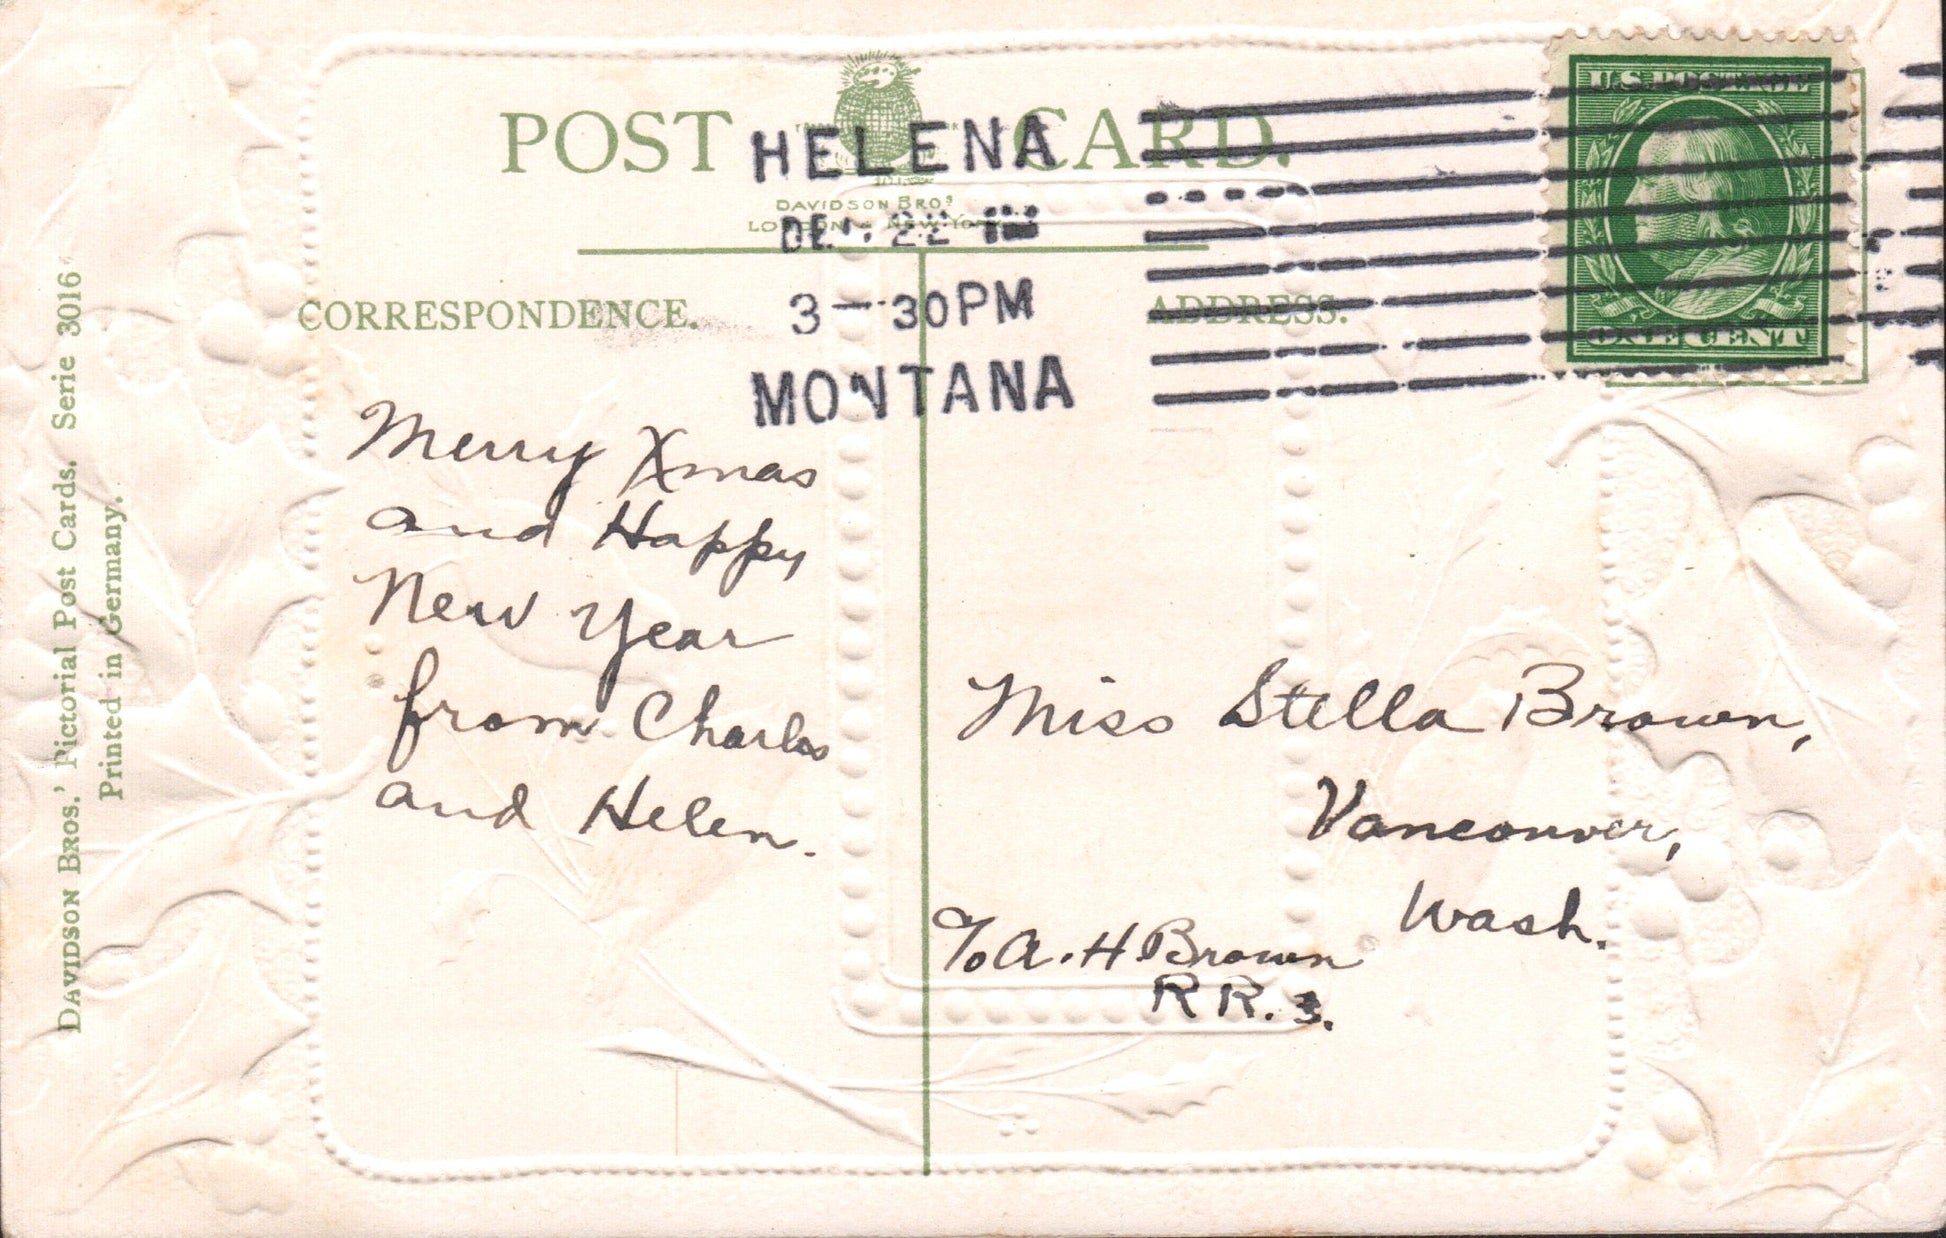 POST CARD.
DAVIDSON BROS
LONDON & NEW YORK
HELENA
DEC 22
3-30PM
MONTANA
U.S. POSTAGE
ONE CENT
CORRESPONDENCE.
ADDRESS.
Merry Xmas
and Happy
New Year
from Charles
and Helen.
Miss Stella Brown,
Vancouver,
Wash.
c/o A. H. Brown
R R. 3.
DAVIDSON BROS.' Pictorial Post Cards. Serie 3016
Printed in Germany.